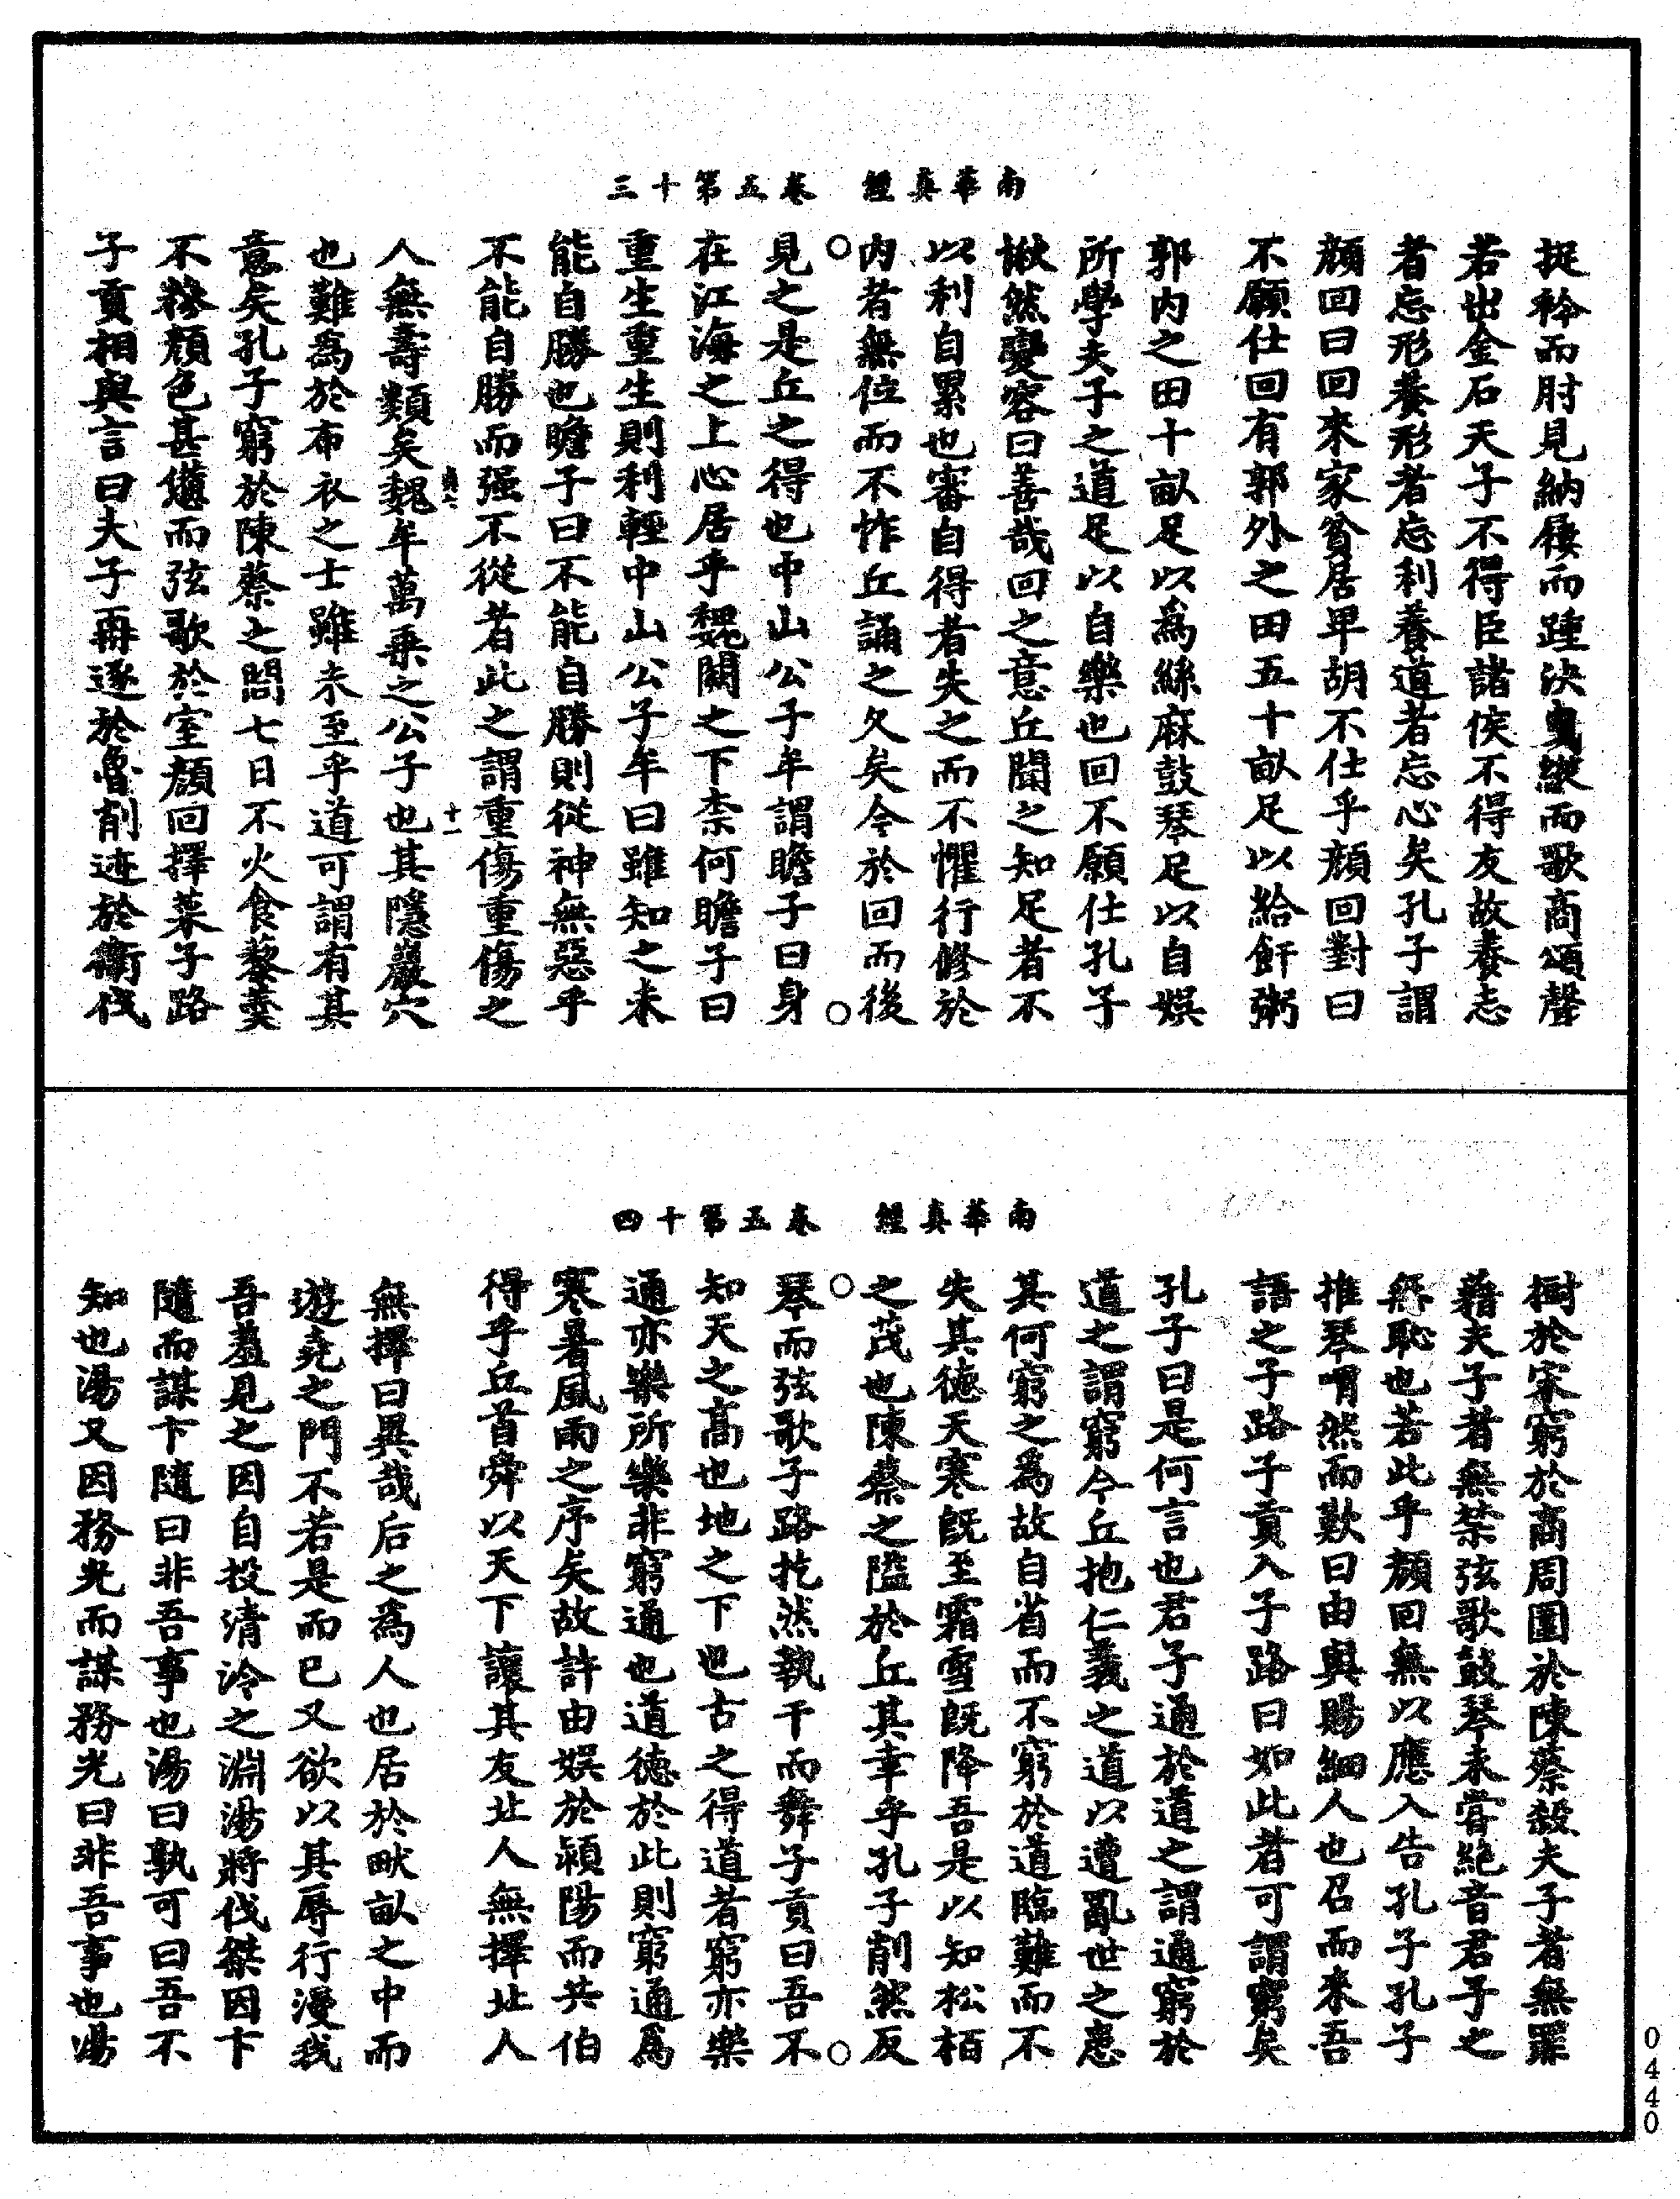 南華真經　卷五第十三
捉衿而肘見納屨而踵決曳縰而歌商頌聲
若出金石天子不得臣諸侯不得友故養志
者忘形養形者忘利養道者忘心矣孔子謂
顏回曰回來家貧居卑胡不仕乎顏回對曰
不願仕回有郭外之田五十畝足以給飦粥
郭內之田十畝足以為絲麻鼓琴足以自娛
所學夫子之道足以自樂也回不願仕孔子
愀然變容曰善哉回之意丘聞之知足者不
以利自累也審自得者失之而不懼行修於
內者無位而不怍丘誦之久矣今於回而後
見之是丘之得也中山公子牟謂瞻子曰身
在江海之上心居乎魏闕之下柰何瞻子曰
重生重生則利輕中山公子牟曰雖知之未
能自勝也瞻子曰不能自勝則從神無惡乎
不能自勝而强不從者此之謂重傷重傷之
十一
人無壽類矣魏牟萬乘之公子也其隱巖穴
也難為於布衣之士雖未至乎道可謂有其
意矣孔子窮於陳蔡之間七日不火食藜羹
不糝顏色甚憊而弦歌於室顏回擇菜子路
子貢相與言曰夫子再逐於魯削迹於衛伐
南華真經　卷五第十四
樹於宋窮於商周圍於陳蔡殺夫子者無罪
藉夫子者無禁弦歌鼓琴未嘗絕音君子之
無恥也若此乎顏回無以應入告孔子孔子
推琴喟然而歎曰由與賜細人也召而來吾
語之子路子貢入子路曰如此者可謂窮矣
孔子曰是何言也君子通於道之謂通窮於
道之謂窮今丘抱仁義之道以遭亂世之患
其何窮之為故自省而不窮於道臨難而不
失其德天寒既至霜雪既降吾是以知松栢
之茂也陳蔡之隘於丘其幸乎孔子削然反
琴而弦歌子路扢然執干而舞子貢曰吾不
知天之高也地之下也古之得道者窮亦樂
通亦樂所樂非窮通也道德於此則窮通為
寒暑風雨之序矣故許由娛於潁陽而共伯
得乎丘首舜以天下讓其友北人無擇北人
無擇曰異哉后之為人也居於畎畝之中而
遊堯之門不若是而已又欲以其辱行漫我
吾羞見之因自投清泠之淵湯將伐桀因卞
隨而謀卞隨曰非吾事也湯曰孰可曰吾不
知也湯又因務光而謀務光曰非吾事也湯
0440